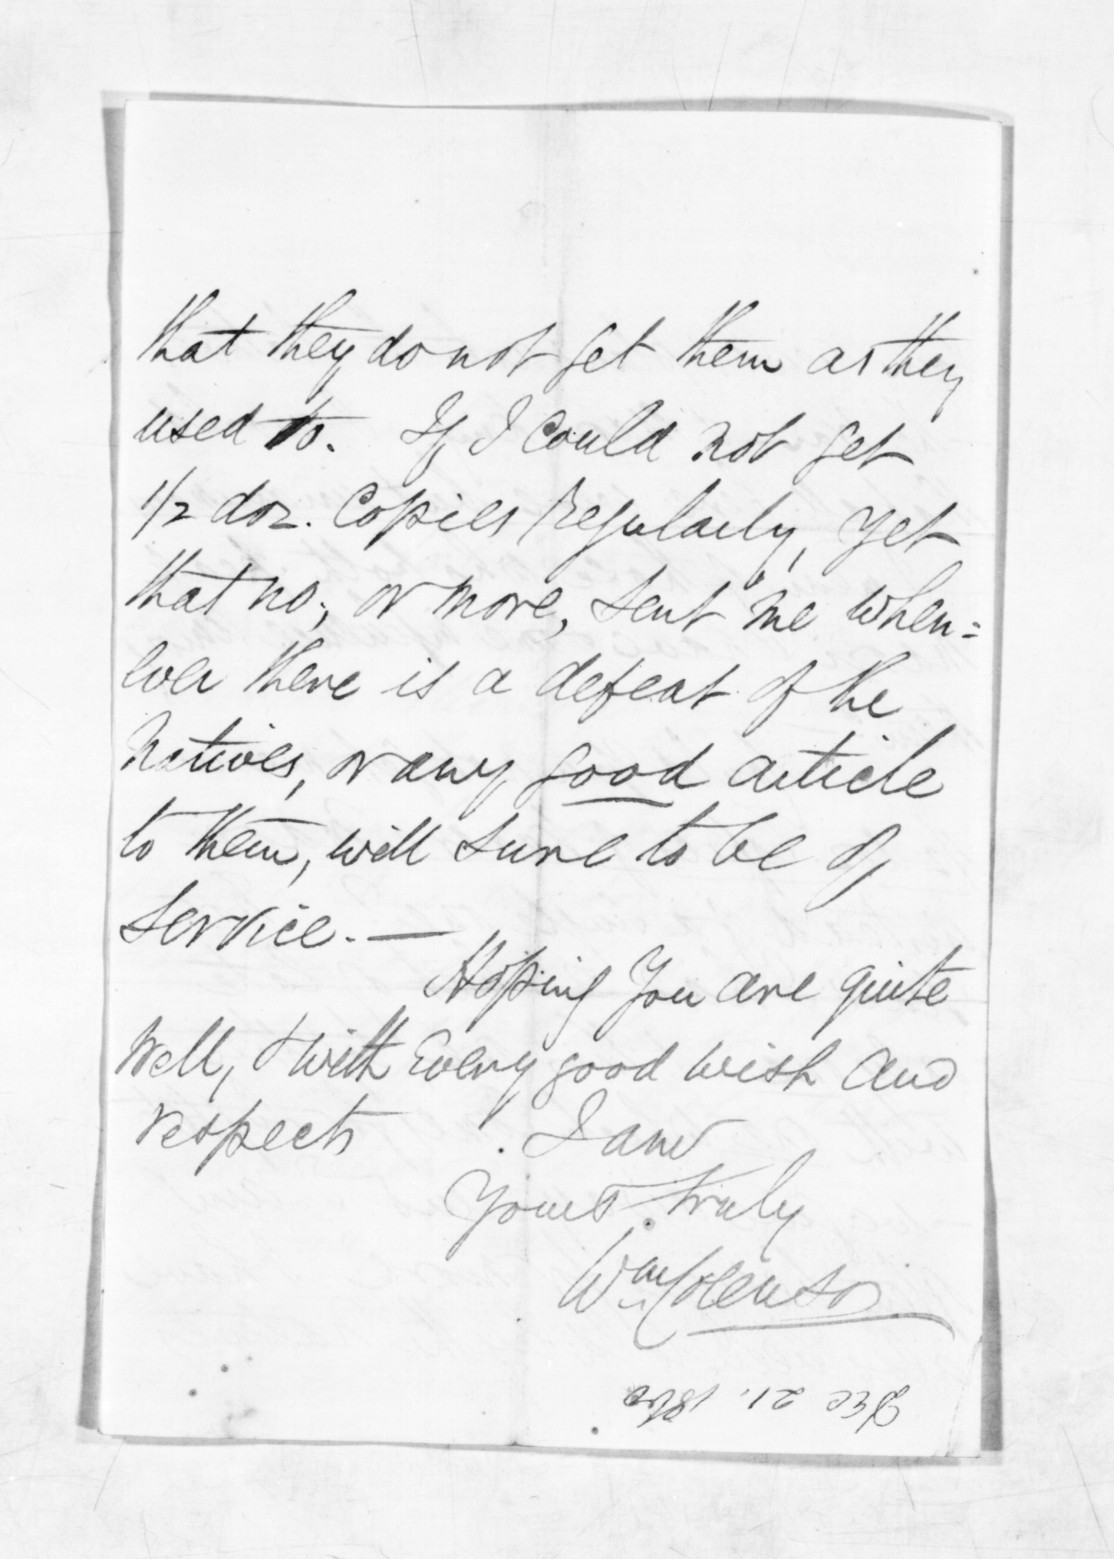 that they do not get them as they
used to. If I could not get
1/2 doz. Copies Regularly, yet
that no., or more, sent me when=
ever there is a defeat of the
Natives, or any good article
to them, will sure to be of
service. —
Hoping you are quite
well, & with Every good wish and
respects
. I am
Yours truly
Wm Colenso
Dec 21. 1860